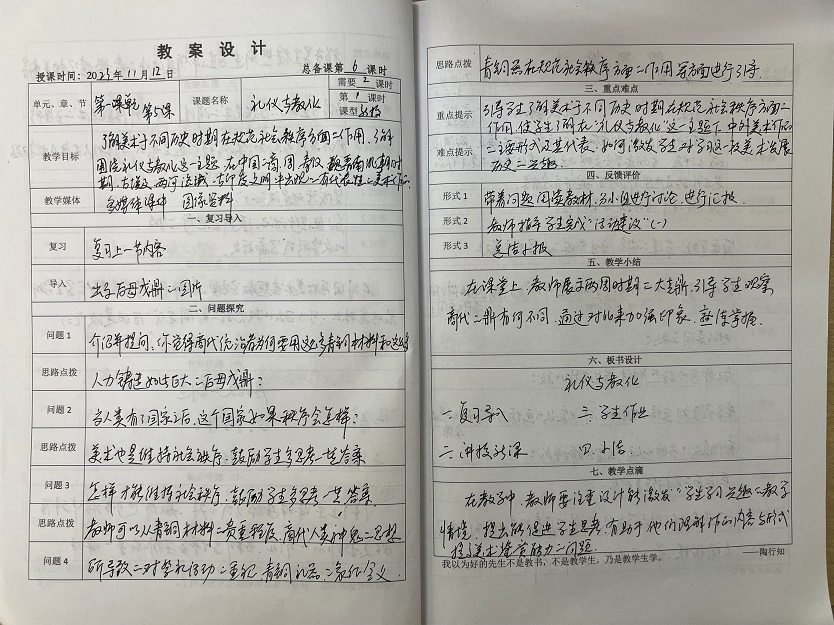 教案设计
授课时间：2023年11月12日 总备课第6课时
单元、章、节 第一课单元 第5课 课题名称 礼仪与教化 需要2课时
第1课时
课型 新授
教学目标 了解美术于不同历史时期在规范社会秩序方面的作用，了解
围绕礼仪与教化这一主题，在中国商、周、秦汉、魏晋南北朝时
期，古埃及、两河流域、古印度文明中出现的有代表性的美术作品。
教学媒体 多媒体课件 图像资料
一、复习导入
复习 复习上一节内容
导入 出示后母戊鼎的图片
二、问题探究
问题1 介绍并提问：你觉得商代统治者为何要用这么多青铜材料和这么多
思路点拨 人力铸造如此巨大的后母戊鼎？
问题2 当人类有了国家之后，这个国家如果秩序会怎样？
思路点拨 美术也是维持社会秩序，鼓励学生多思考一些答案
问题3 怎样才能维持社会秩序，鼓励学生多思考一些答案。
思路点拨 教师可以从青铜材料的贵重程度、商代人类神鬼的思想
问题4 所导致的对祭礼活动的重视，青铜礼器的象征含义
思路点拨 青铜器在规范社会秩序方面的作用等方面进行引导。
三、重点难点
重点提示 引导学生了解美术于不同历史时期在规范社会秩序方面的
作用，使学生了解在“礼仪与教化”这一主题下中外美术作品
难点提示 的主要形式及其代表，如何激发学生对学习这一段美术发展
历史的兴趣
四、反馈评价
形式1 带着问题阅读教材，分小组进行讨论，进行汇报
形式2 教师指导学生完成“活动建议”（一）
形式3 总结小报
五、教学小结
在课堂上，教师展示西周时期的大盂鼎，引导学生观察
商代的鼎有何不同，通过对比来加强印象，整体掌握。
六、板书设计
礼仪与教化
一、复习导入 三、学生作业
二、讲授新课 四、小结
七、教学点滴
在教学中，教师要注重设计能激发“学生学习兴趣”的教学
情境，提出能促进学生思考，有助于他们理解作品内容与形式
提高美术鉴赏能力的问题
我以为好的先生不是教书，不是教学生，乃是教学生学。 ——陶行知